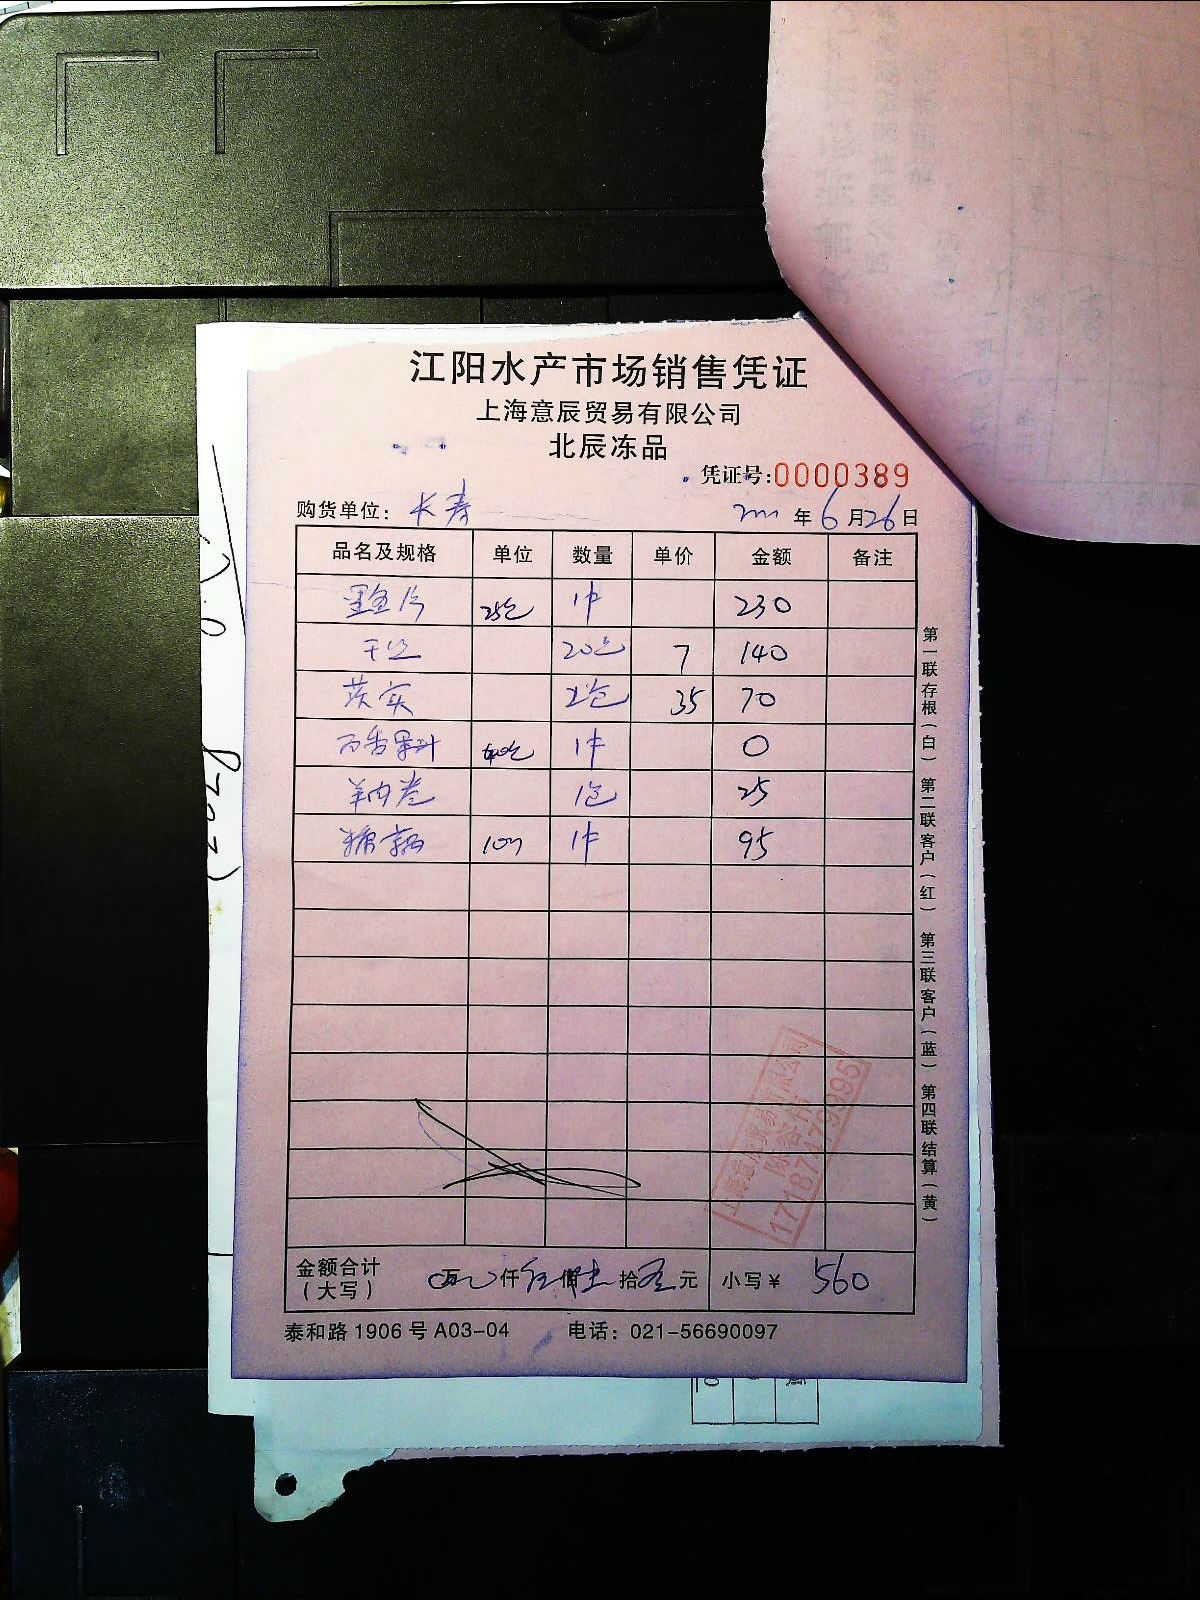 江阳水产市场销售凭证
上海意辰贸易有限公司
北辰冻品
凭证号:0000389
购货单位: 长寿 年 6 月 26 日
品名及规格 单位 数量 单价 金额 备注
墨鱼片 25包 1件 230
干丝 20包 7 140
茨实 2包 35 70
百香果汁 1件 0
羊肉卷 1包 25
1件 95
金额合计 万 仟 伍 佰 陆 拾 元 小写¥ 560
(大写)
泰和路1906号A03-04 电话: 021-56690097
第一联存根(白) 第二联客户(红) 第三联客户(蓝) 第四联结算(黄)
上海意辰贸易有限公司
17187179995